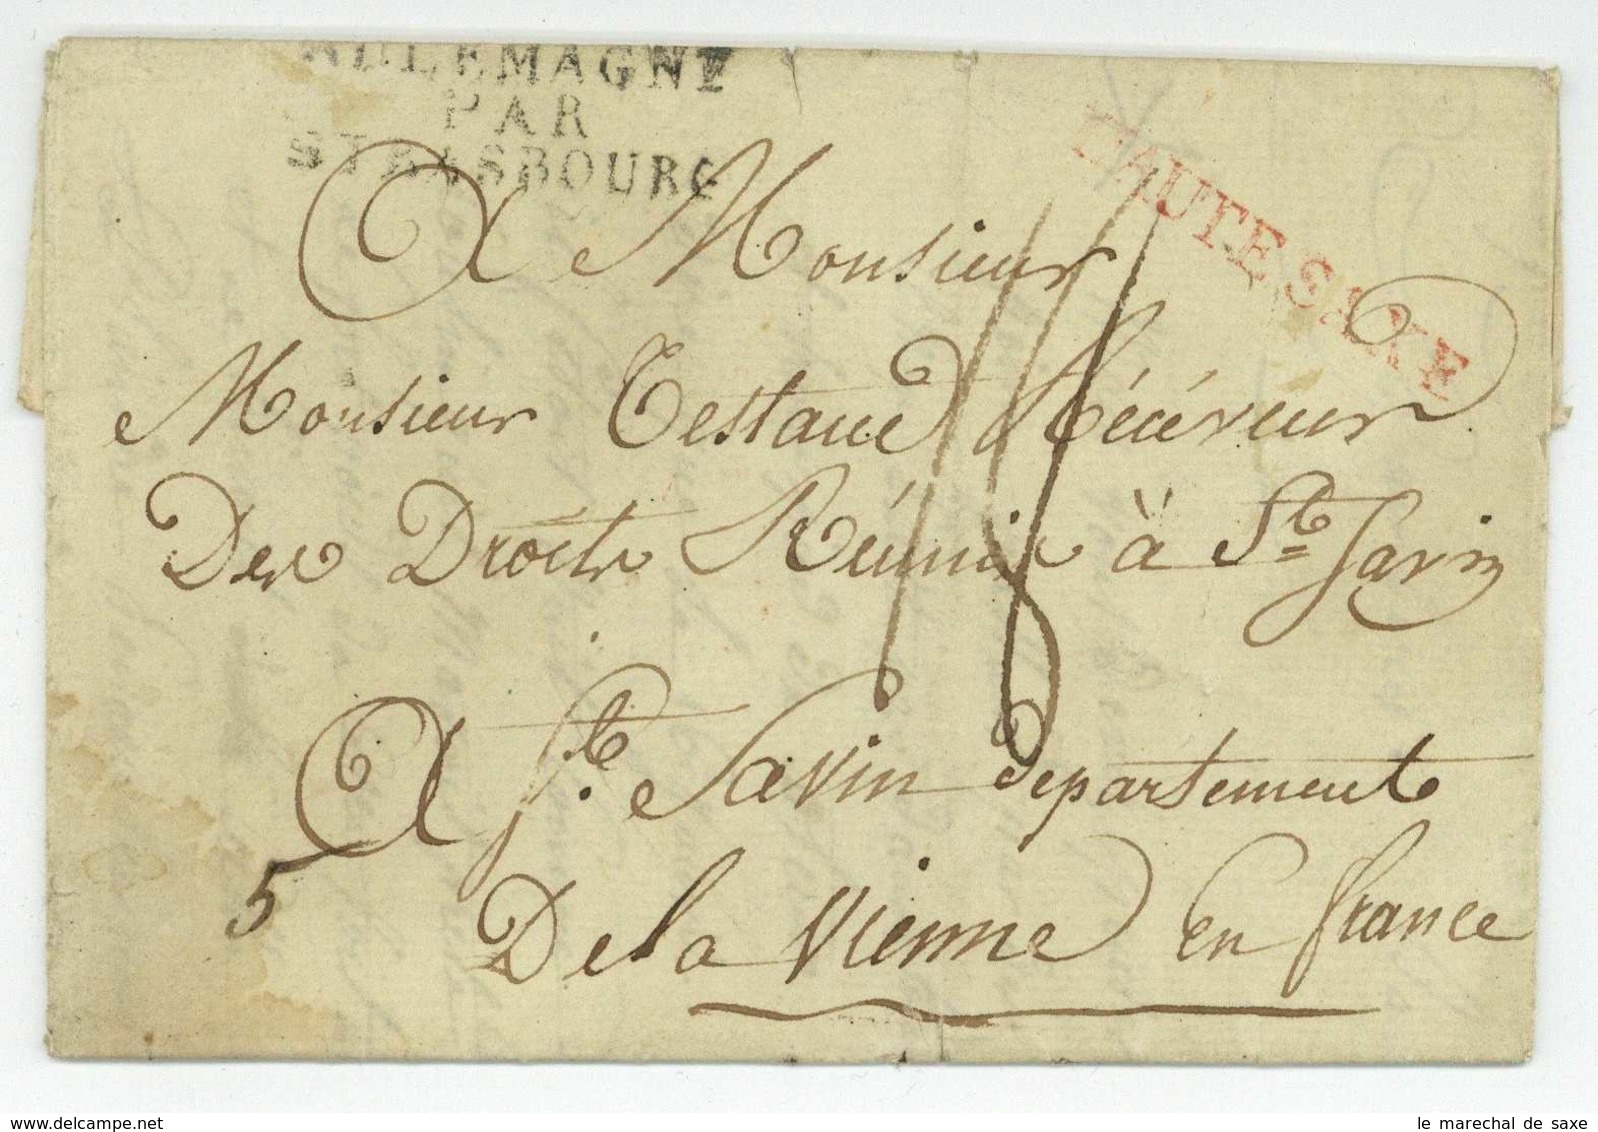 ALLEMAGNE
PAR
STRASBOURG
HAUTE SAXE
A Monsieur
Monsieur Testaud Récéveur
Des Droits Réunis à St Savin
A St. Savin departement
5
De la Vienne en france
le marechal de saxe